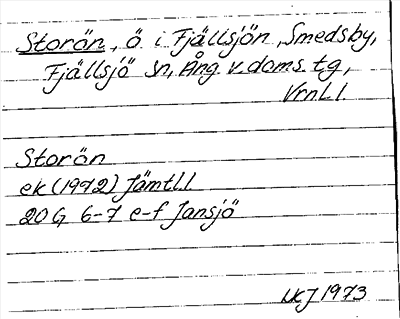 Storön, ö i Fjällsjön, Smedsby,
Fjällsjö sn, Ång v. doms. tg,
Vrnl l
Storön
ek (1972) Jämtl l
20 G 6-7 e-f Jansjö
1973